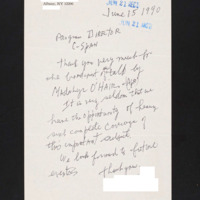 Albany, NY 12208
JUN 21 1990
June 15 1990
Program Director
C-Span
Thank you very much for
the broadcast of talk by
Madalyn O'Hair
It is very seldom that we
have the opportunity of having
such complete coverage of
this important subject.
We look forward to future
events.
Thank you